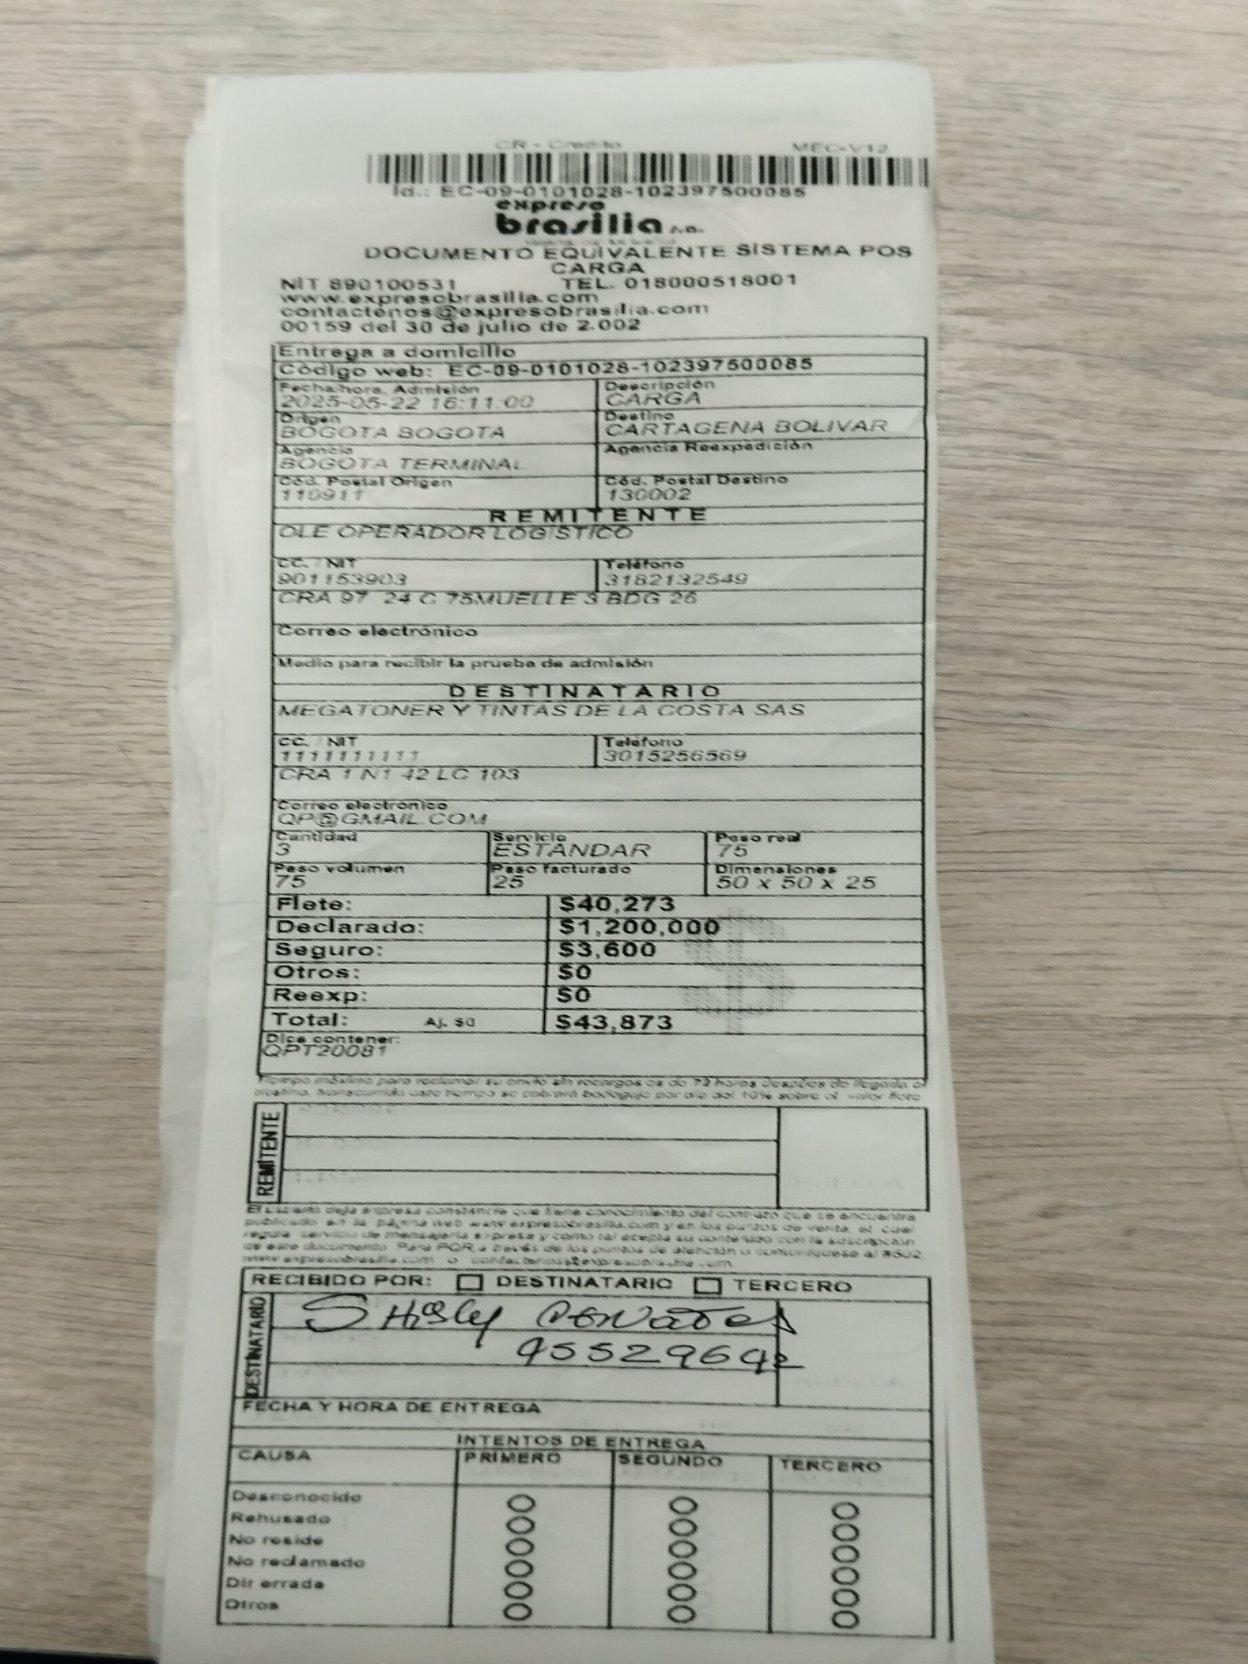 CR - Credito MEC-V12
Id.: EC-09-0101028-102397500085
expreso
brasilia s.a.
DOCUMENTO EQUIVALENTE SISTEMA POS
CARGA
NIT 890100531 TEL. 018000518001
www.expresobrasilia.com
contactenos@expresobrasilia.com
00159 del 30 de julio de 2.002
Entrega a domicilio
Código web: EC-09-0101028-102397500085
Fecha/hora. Admisión Descripción
2025-05-22 16:11:00 CARGA
Origen Destino
BOGOTA BOGOTA CARTAGENA BOLIVAR
Agencia Agencia Reexpedición
BOGOTA TERMINAL
Cód. Postal Origen Cód. Postal Destino
110911 130002
REMITENTE
OLE OPERADOR LOGISTICO
CC. / NIT Teléfono
901153903 3182132549
CRA 97 24 C 75MUELLE 3 BDG 26
Correo electrónico
Medio para recibir la prueba de admisión
DESTINATARIO
MEGATONER Y TINTAS DE LA COSTA SAS
CC. / NIT Teléfono
1111111111 3015256569
CRA 1 N1 42 LC 103
Correo electrónico
QP@GMAIL.COM
Cantidad Servicio Peso real
3 ESTANDAR 75
Peso volumen Peso facturado Dimensiones
75 25 50 x 50 x 25
Flete: $40,273
Declarado: $1,200,000
Seguro: $3,600
Otros: $0
Reexp: $0
Total: Aj. $0 $43,873
Dice contener:
QPT20081
Tiempo máximo para reclamar su envío sin recargos es de 72 horas después de llegada a
destino, transcurrido este tiempo se cobrará bodegaje por día del 10% sobre el valor flete
REMITENTE
HUELLA
El usuario deja expresa constancia que tiene conocimiento del contrato que se encuentra
publicado en la página web www.expresobrasilia.com y en los puntos de venta, el cual
regula servicio de mensajería expresa y como tal acepta su contenido con la suscripción
de este documento. Para PQR a través de los puntos de atención o comuníquese al #502
www.expresobrasilia.com o contactenos@expresobrasilia.com
RECIBIDO POR: DESTINATARIO TERCERO
DESTINATARIO
HUELLA
FECHA Y HORA DE ENTREGA
INTENTOS DE ENTREGA
CAUSA PRIMERO SEGUNDO TERCERO
Desconocido
Rehusado
No reside
No reclamado
Dir errada
Otros